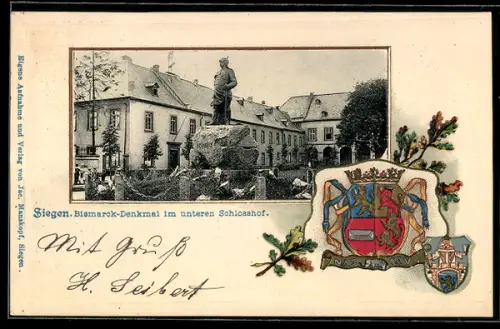 Eigene Aufnahme und Verlag von Jac. Manskopf, Siegen.
Siegen. Bismarck-Denkmal im unteren Schlosshof.
Mit Gruß
H. Seibert